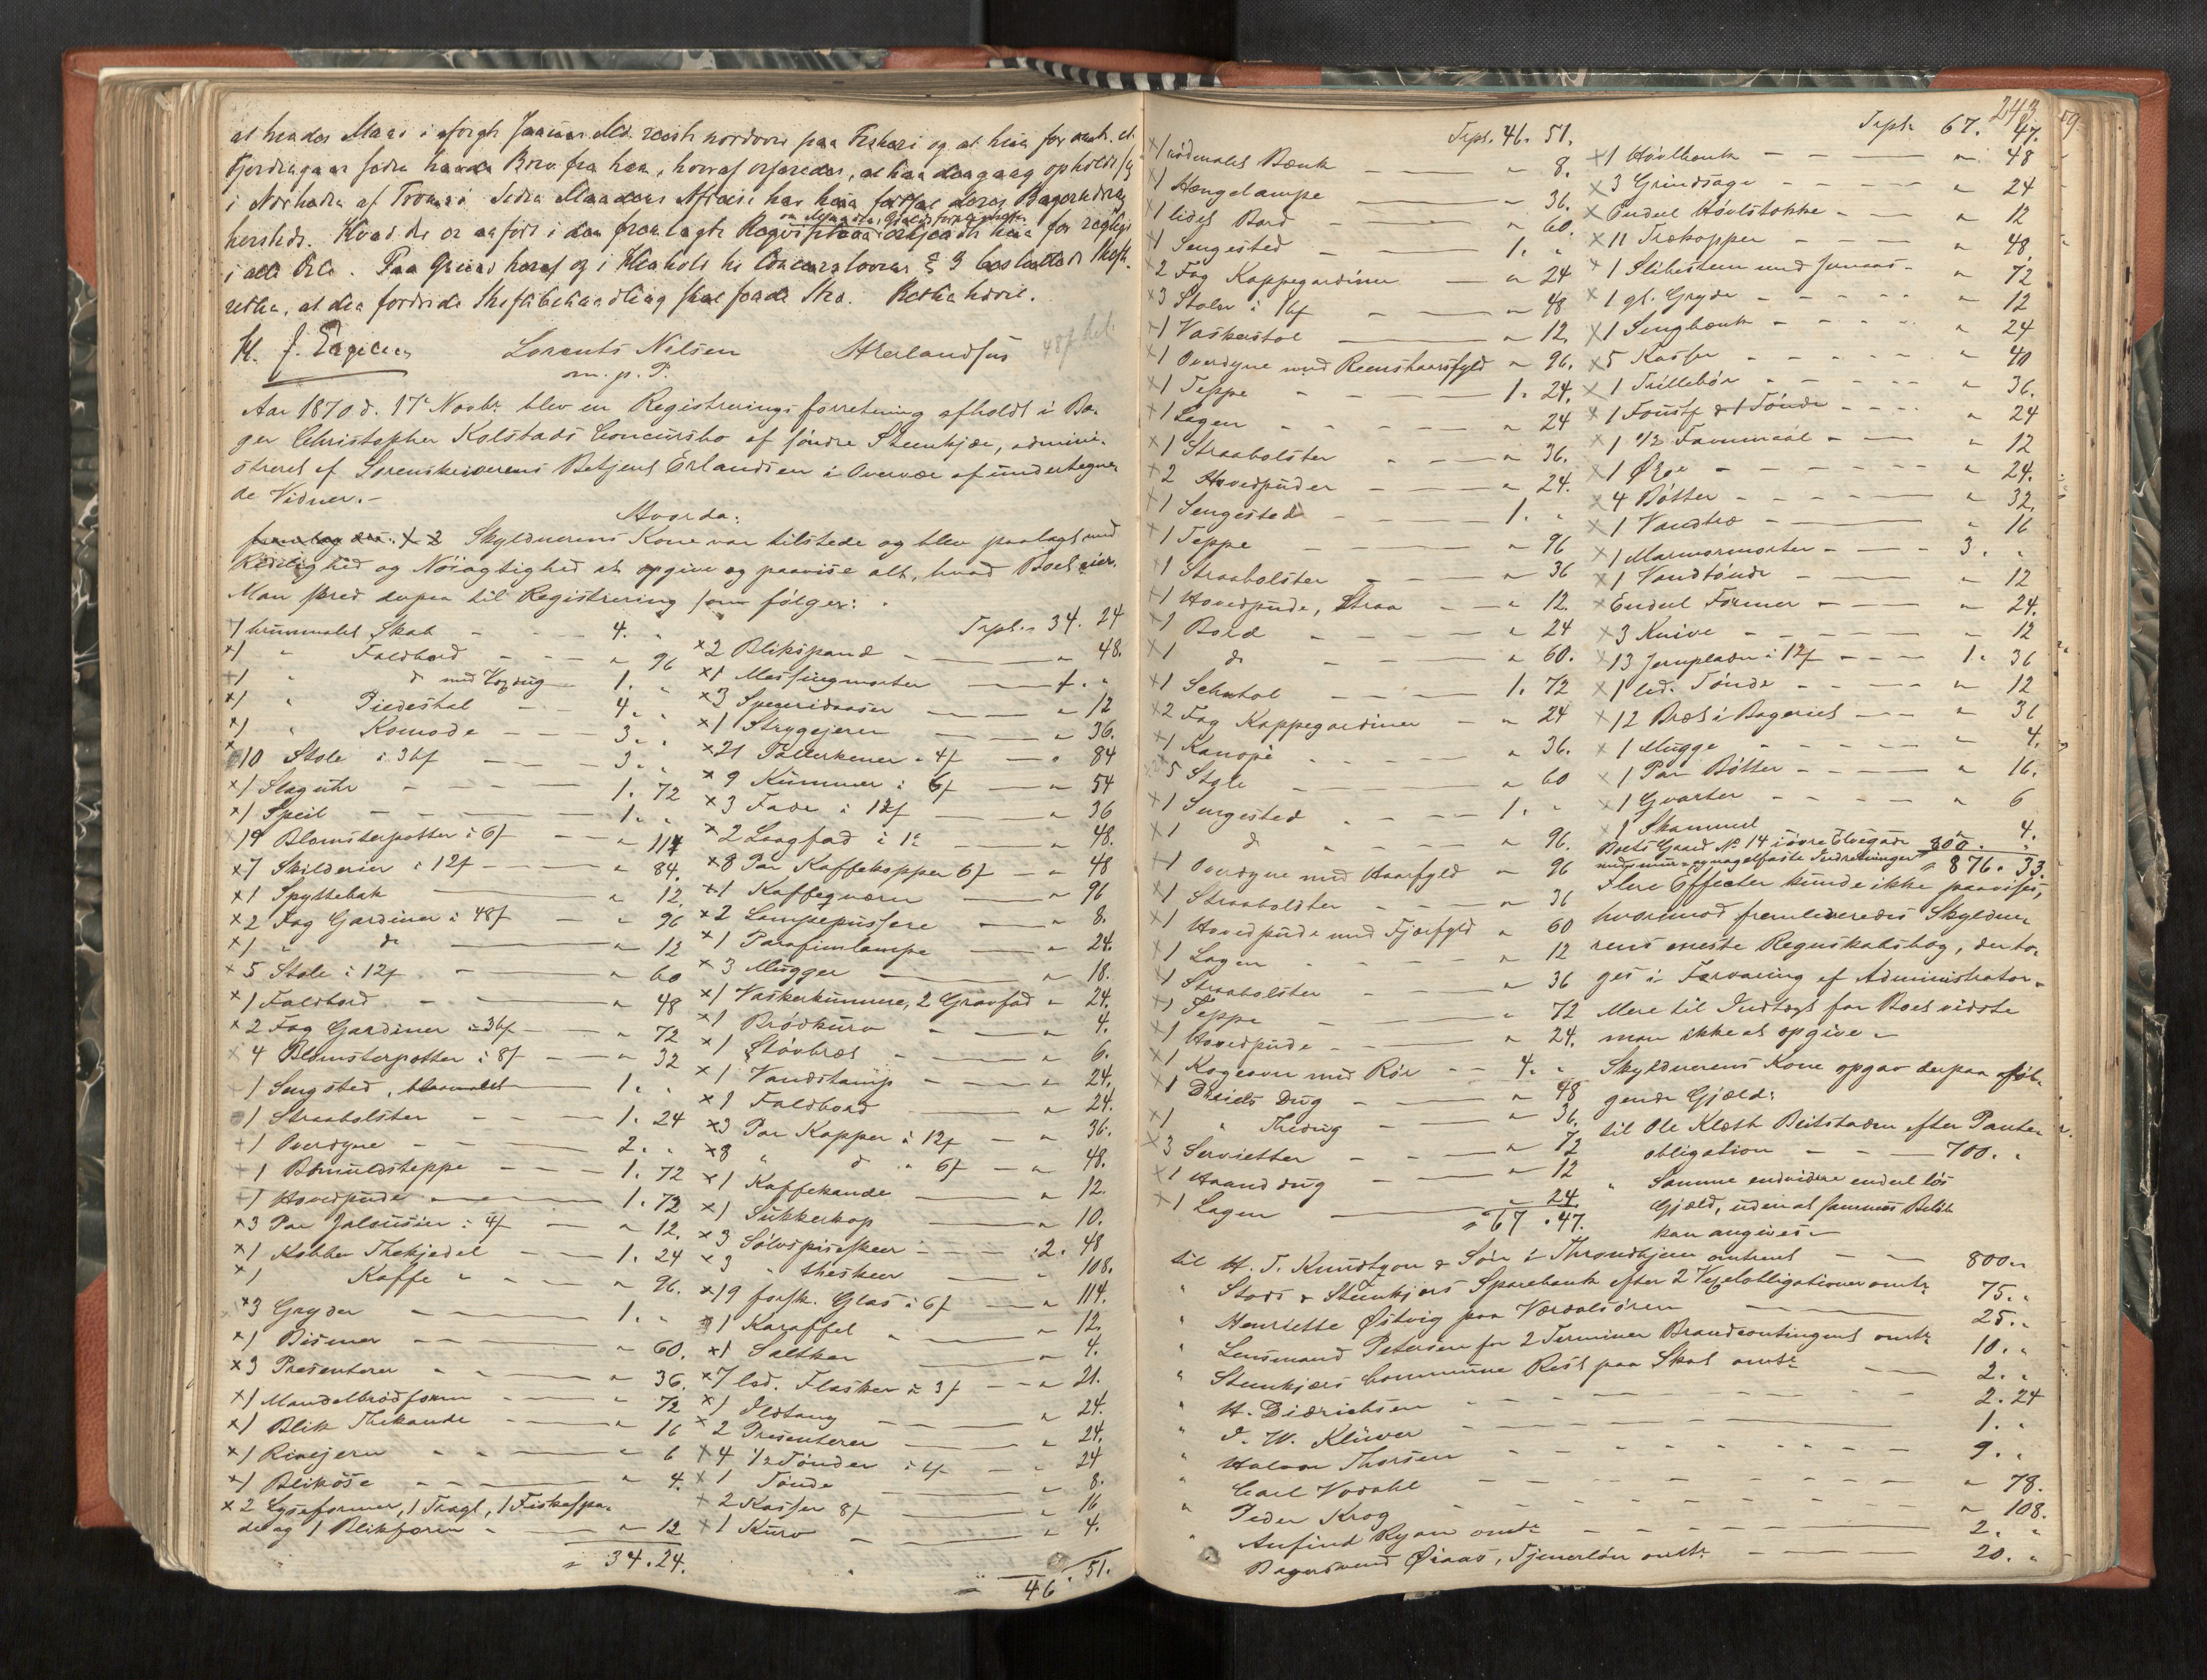 at hendes Mand i afvigte Januar Md. reiste nordover paa Fiskeri og at hun for omtr. et
Fjerdingaar siden havde Brev fra ham, hvoraf erfaredes, at han dengang opholdt sig
i Nærheden af Tromsø. Siden Mandens Afreise har hun fortsat deres Bagerbedrift
hersteds. Hvad der er anført i den fremlagte Requisition om Mandens Gjeldsforpligtelser erkjendte hun for rigtigt
i alle Dele. Paa Grund heraf og i Henhold til Concurslovens § 3 besluttede Skifte-
retten, at den fordrede Skiftebehandling skal finde Sted. Retten hævet.
48 f bet.
Lorents Nilsen
m. p. P.
Aar 1870 d. 17de Novbr. blev en Registreringsforretning afholdt i Ba-
ger Christopher Kolstads Concursbo af søndre Steenkjær, admini-
streret af Sorenskriverens Betjent Erlandsen i Overvær af undertegne-
de Vidner.-
Hvorda:
Skyldnerens Kone var tilstede og blev paalagt med
Redelighed og Nøiagtighed at opgive og paavise alt, hvad Boet eier.
Man skred derpaa til Registrering som følger:
1 brunmalet Skab 4. "
1 " Faldbord " 96
1 " do med Voxdug 1. "
1 " Piedestal 4. "
1 " Komode 3. "
10 Stole à 36f 3. "
1 Slaguhr 1. 72
1 Speil 1. "
19 Blomsterpotter à 6f " 114
7 Skilderier à 12f " 84.
1 Spyttebak " 12.
2 Fag Gardiner à 48f " 96
1 " do " 12
5 Stole à 12f " 60
1 Faldbord " 48
2 Fag Gardiner à 36f " 72
4 Blomsterpotter à 8f " 32
1 Sengsted, 1. "
1 Straabolster 1. 24
1 Overdyne 2. "
1 Bomuldsteppe 1. 72
1 Hovedpude 1. 72
3 Par Jalousier à 4f " 12.
1 Kobber Thekjedel 1. 24
1 Kaffe " " 96.
3 Gryder 1. "
1 Bismer " 60.
3 Presenterer " 36.
1 Mandelbrødform " 72
1 Blik Thekande " 16
1 Rivejern " 6
1 Blikøse " 4.
2 Lyseformer, 1 Tragt, 1 Fiskespa-
de og 1 Blikform " 12
" 34.24.
Trspt. " 34. 24
2 Blikspand " 48.
1 Messingmorter 1. "
3 Speceridaaser " 12
1 Strygejern " 36.
21 Tallerkener à 4f " 84
9 Kummer à 6f " 54
3 Fade à 12f " 36
2 Laagfad " 48.
8 Par Kaffekopper 6f " 48
1 Kaffeqværn " 96
2 Lampepussere " 8.
1 Parafinlampe " 24.
3 Mugger " 18.
1 Vaskekumme, 2 Gravfad " 24.
1 Brødkurv " 4.
1 Støvbræt " 6.
1 Vandstamp " 24.
1 Faldbord " 24.
3 Par Kopper à 12f " 36.
8 " do " 6f " 48.
1 Kaffekande " 12
1 Sukkerkop " 10.
3 Sølvspiseskeer 2. 48
3 " theskeer " 108.
19 forsk. Glas à 6f " 114.
1 Karaffel " 12.
1 Saltkar " 4.
7 led. Flasker à 3f " 21.
1 Ildtang " 24.
2 Presenterer " 24.
4 1/2 Tønder " 24
1 Tønde " 8.
2 Kasser 8f " 16
1 Kurv " 4.
46. 51.
243.
Trspt. 46. 51.
1 rødmalet Bænk " 8.
1 Hængelampe " 36.
1 lidet Bord " 60.
1 Sengested 1. "
2 Fag Kappegardiner " 24
3 Stole à 16f " 48
1 Vaskerstol " 12.
1 Overdyne med Reenshaarsfyld " 96.
1 Teppe 1. 24.
1 Lagen " 24
1 Straabolster " 36.
2 Hovedpuder " 24.
1 Sengested 1. "
1 Teppe " 96
1 Straabolster " 36
1 Hovedpude, Straa " 12.
1 Bord " 24
1 do " 60.
1 Schatol 1. 72
2 Fag Kappegardiner " 24
1 Kanope " 36.
5 Stole " 60
1 Sengested 1. "
1 do " 96.
1 Overdyne med Haarfyld " 96
1 Straabolster " 36
1 Hovedpude med Fjærfyld " 60
1 Lagen " 12
1 Straabolster " 36
1 Teppe " 72
1 Hovedpude " 24.
1 Kogeovn med Rør 4. "
1 Dreiels Dug " 48
1 " Thedug " 36.
3 Servietter " 72
1 Haanddug " 12
1 Lagen " 24.
" 67 . 47.
Trspt. 67. 47.
1 Høvlbænk " 48
3 Grindsage " 24
Endeel Høvlstokke " 12
11 Trækopper " 48.
1 Slibesteen med " 72
1 gl. Gryde " 12
1 Sengbænk " 24
5 Kasser " 40
1 Trillebør " 36.
1 & 1 Tønde " 24
1 1/2 Favnmaal " 12
1 Øxe " 24.
4 Bøtter " 32.
1 Vandtræ " 16
1 Marmormorter 3. "
1 Vandtønde " 12
Endeel Former " 24.
3 Knive " 12
13 Jernplader à 12f 1. 36
1 led. Tønde " 12
12 Bræt i Bageriet " 36
1 Mugge " 4.
1 Par Bøtter " 16.
1 Qvarter " 6
1 Skammel " 4.
Boets Gaard No 14 i øvre Elvegade 800. "
med mur- og nagelfaste Indretninger " 876. 33.
Flere Effecter kunde ikke paavises,
hvorimod fremleveredes Skyldne-
rens eneste Regnskabsbog, der to-
ges i Forvaring af Administrator.
Mere til Indtægt for Boet vidste
man ikke at opgive.-
Skyldnerens Kone opgav derpaa følgende
gende Gjæld:
til Ole Kleth Beitstaden efter Pante-
obligation 700. "
" Samme endvidere endeel løs
Gjæld, uden at sammes Beløb
kan angives.-
til H. T. Knudtzon & Søn i Throndhjem omtrent 800. "
" Stods & Steenkjærs Sparebank efter 2 Vexelobligationer omtr. 75. "
" Henriette Østvig paa Værdalsøren 25. "
" Lensmand Petersen for 2 Terminer Brandcontingent omtr. 10. "
" Steenkjærs Commune Rest paa Skat omtr. 2. "
" H. Didrichsen 2. 24
" J. W. Klüwer 1. "
" Halvor Thorsen 9. "
" Carl Vodahl " 78.
" Peder Krog " 108.
" Anfind Ryan omtr. 2. "
" Bagersvend Øiaas, Tjenerløn omtr. 20. "